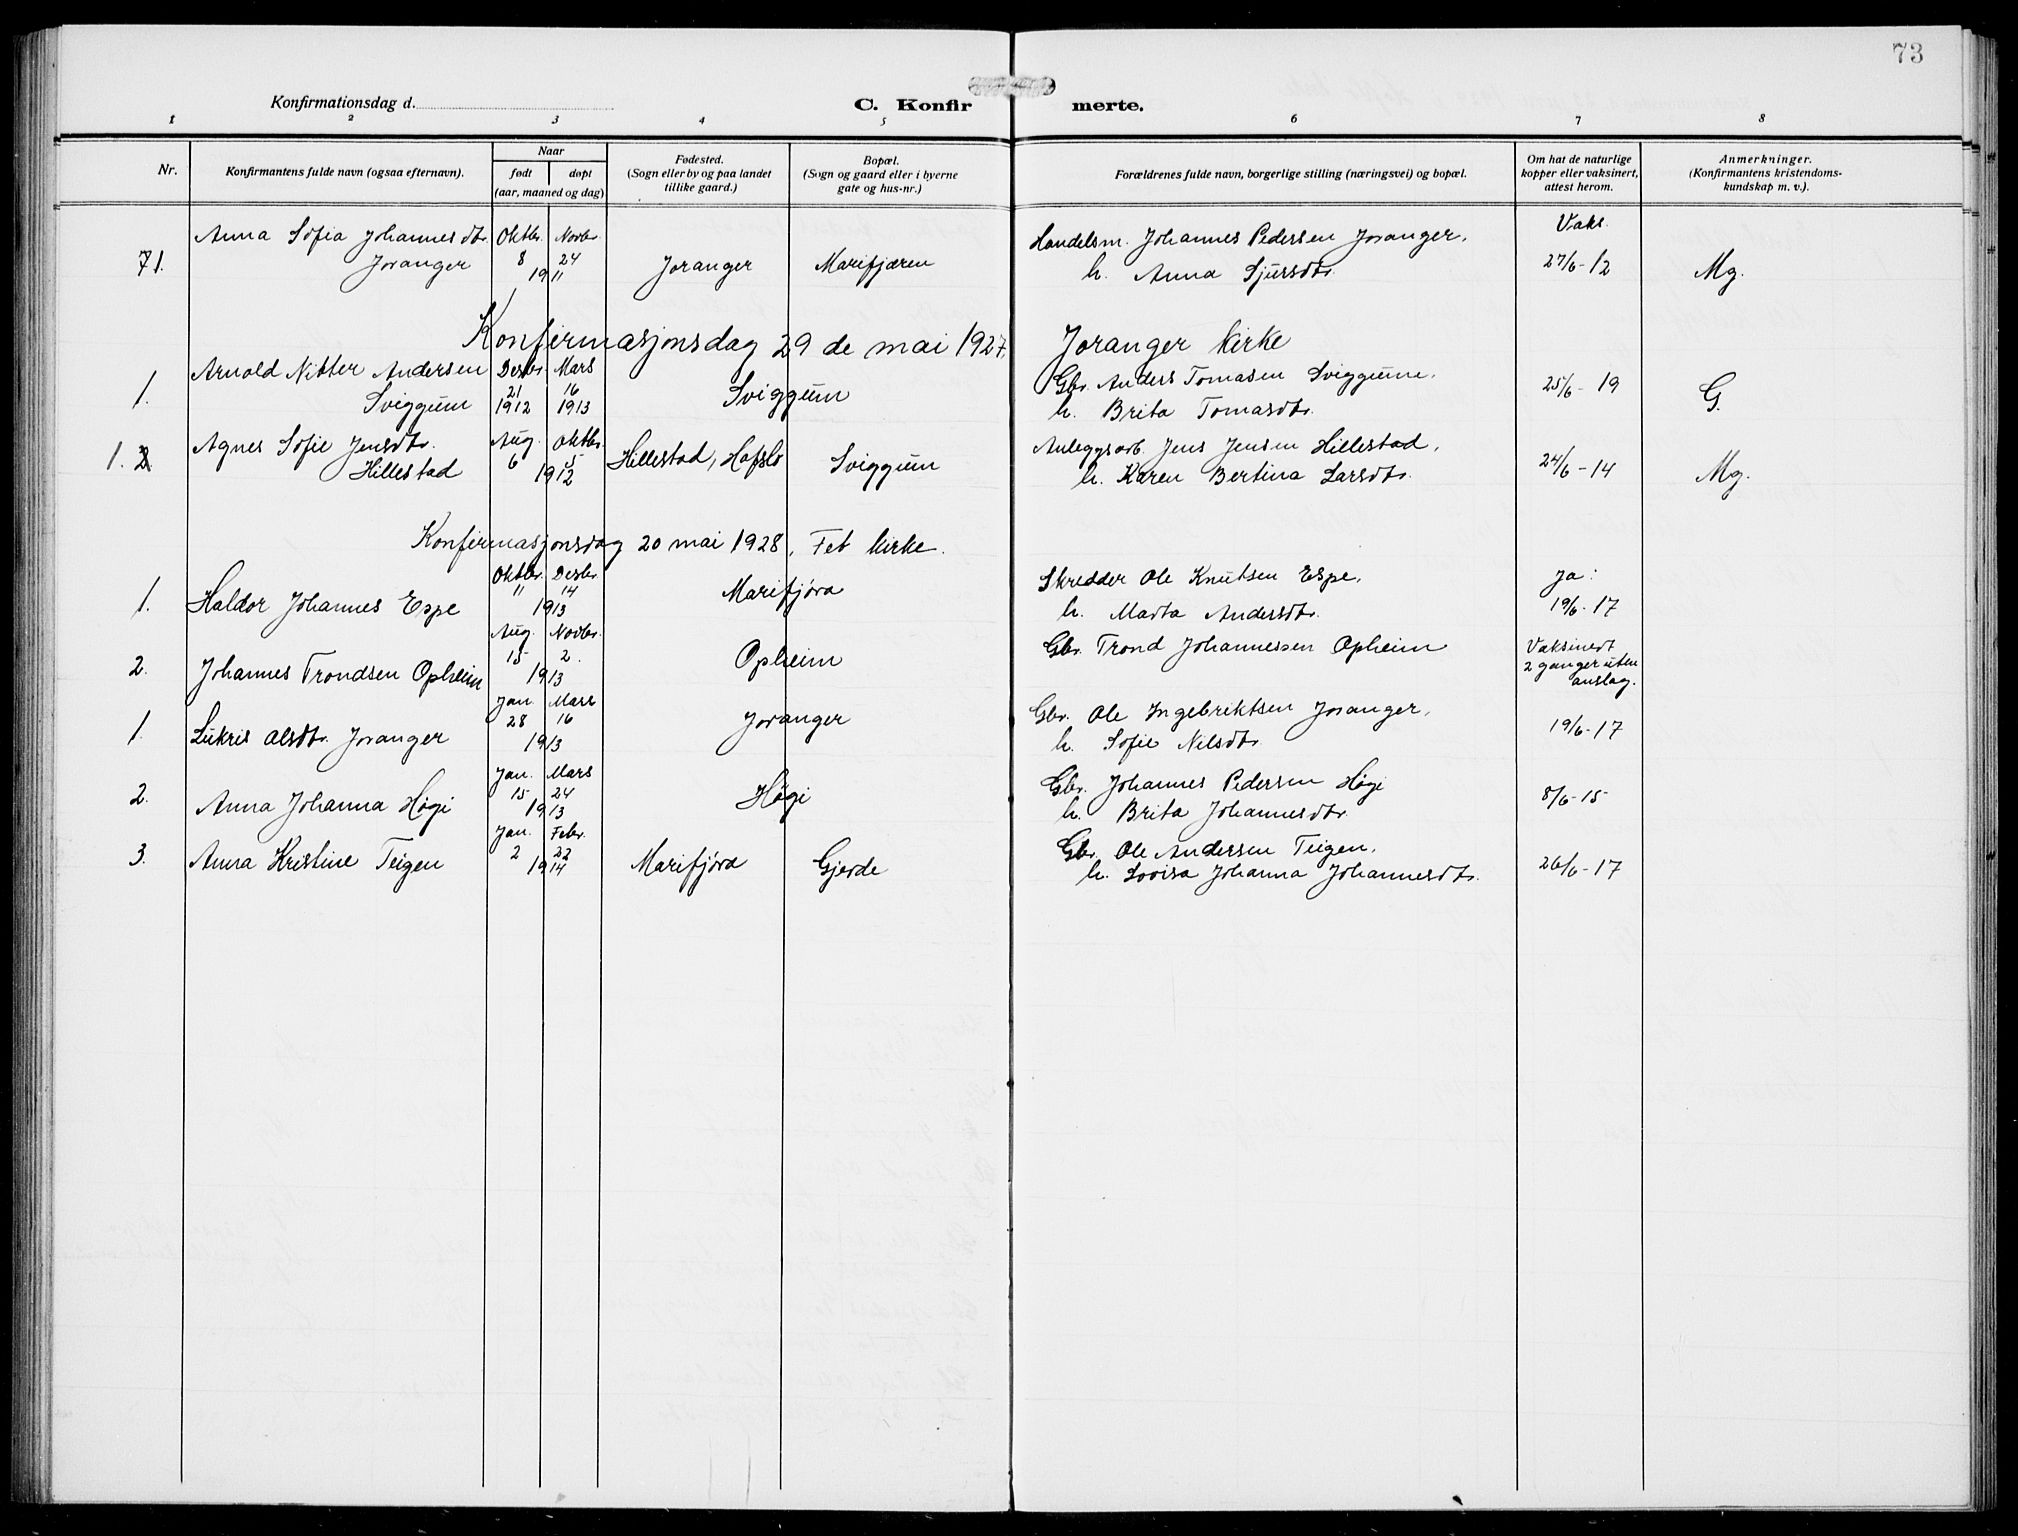 73
Konfirmationsdag d.
C. Konfirmerte.
1 2 3 4 5 6 7 8
Nr.
Konfirmantens fulde navn (ogsaa efternavn).
Naar
født døpt
(aar, maaned og dag)
Fødested.
(Sogn eller by og paa landet
tillike gaard.)
Bopæl.
(Sogn og gaard eller i byerne
gate og hus-nr.)
Forældrenes fulde navn, borgerlige stilling (næringsvei) og bopæl.
Om hat de naturlige
kopper eller vaksinert,
attest herom.
Anmerkninger.
(Konfirmantens kristendoms-
kundskap m. v.).
Anna Sofia Johannesdtr. Oktbr. Novbr. Handelsm. Johannes Pedersen Joranger, Vaks.
71. Joranger 8 24 Joranger Marifjæren h. Anna Sjursdtr. 27/6-12 Mg.
1911
Konfirmasjonsdag 29 de mai 1927, Joranger kirke
Arnold Nitter Andersen Desbr. Mars Gbr. Anders Tomasen Sviggum,
1. Sviggum 21 16 Sviggum 25/6-19 G.
1912 1913 h. Brita Tomasdtr.
Agnes Sofie Jensdtr. Aug. Oktbr. Anleggsarb. Jens Jensen Hillestad,
1. 2. Hillestad 6 5 Hillestad, Hafslo Sviggum h. Karen Bertina Larsdtr. 24/6-14 Mg.
1912
Konfirmasjonsdag 20 mai 1928, Fet kirke.
Oktbr. Desbr. Skredder Ole Knutsen Espe, Ja:
1. Haldor Johannes Espe 11 14 Marifjøra h. Marta Andersdtr. 19/6-17
1913
Aug. Novbr. Gbr. Trond Johannessen Opheim Vaksinert
2. Johannes Trondsen Opheim 15 2. Opheim 2 ganger uten
1913 anslag.
Jan. Mars Gbr. Ole Ingebriktsen Joranger,
1. Lukris Olsdtr. Joranger 28 16 Joranger h. Sofie Nilsdtr. 19/6-17
1913
Jan. Mars Gbr. Johannes Pedersen Høgi
2. Anna Johanna Høgi 15 24 Høgi h. Brita Johannesdtr. 8/6-15
1913
Jan. Febr. Gbr. Ole Andersen Teigen,
3. Anna Kristine Teigen 2 22 Marifjøra Gjerde h. Lovisa Johanna Johannesdtr. 26/6-17
1914